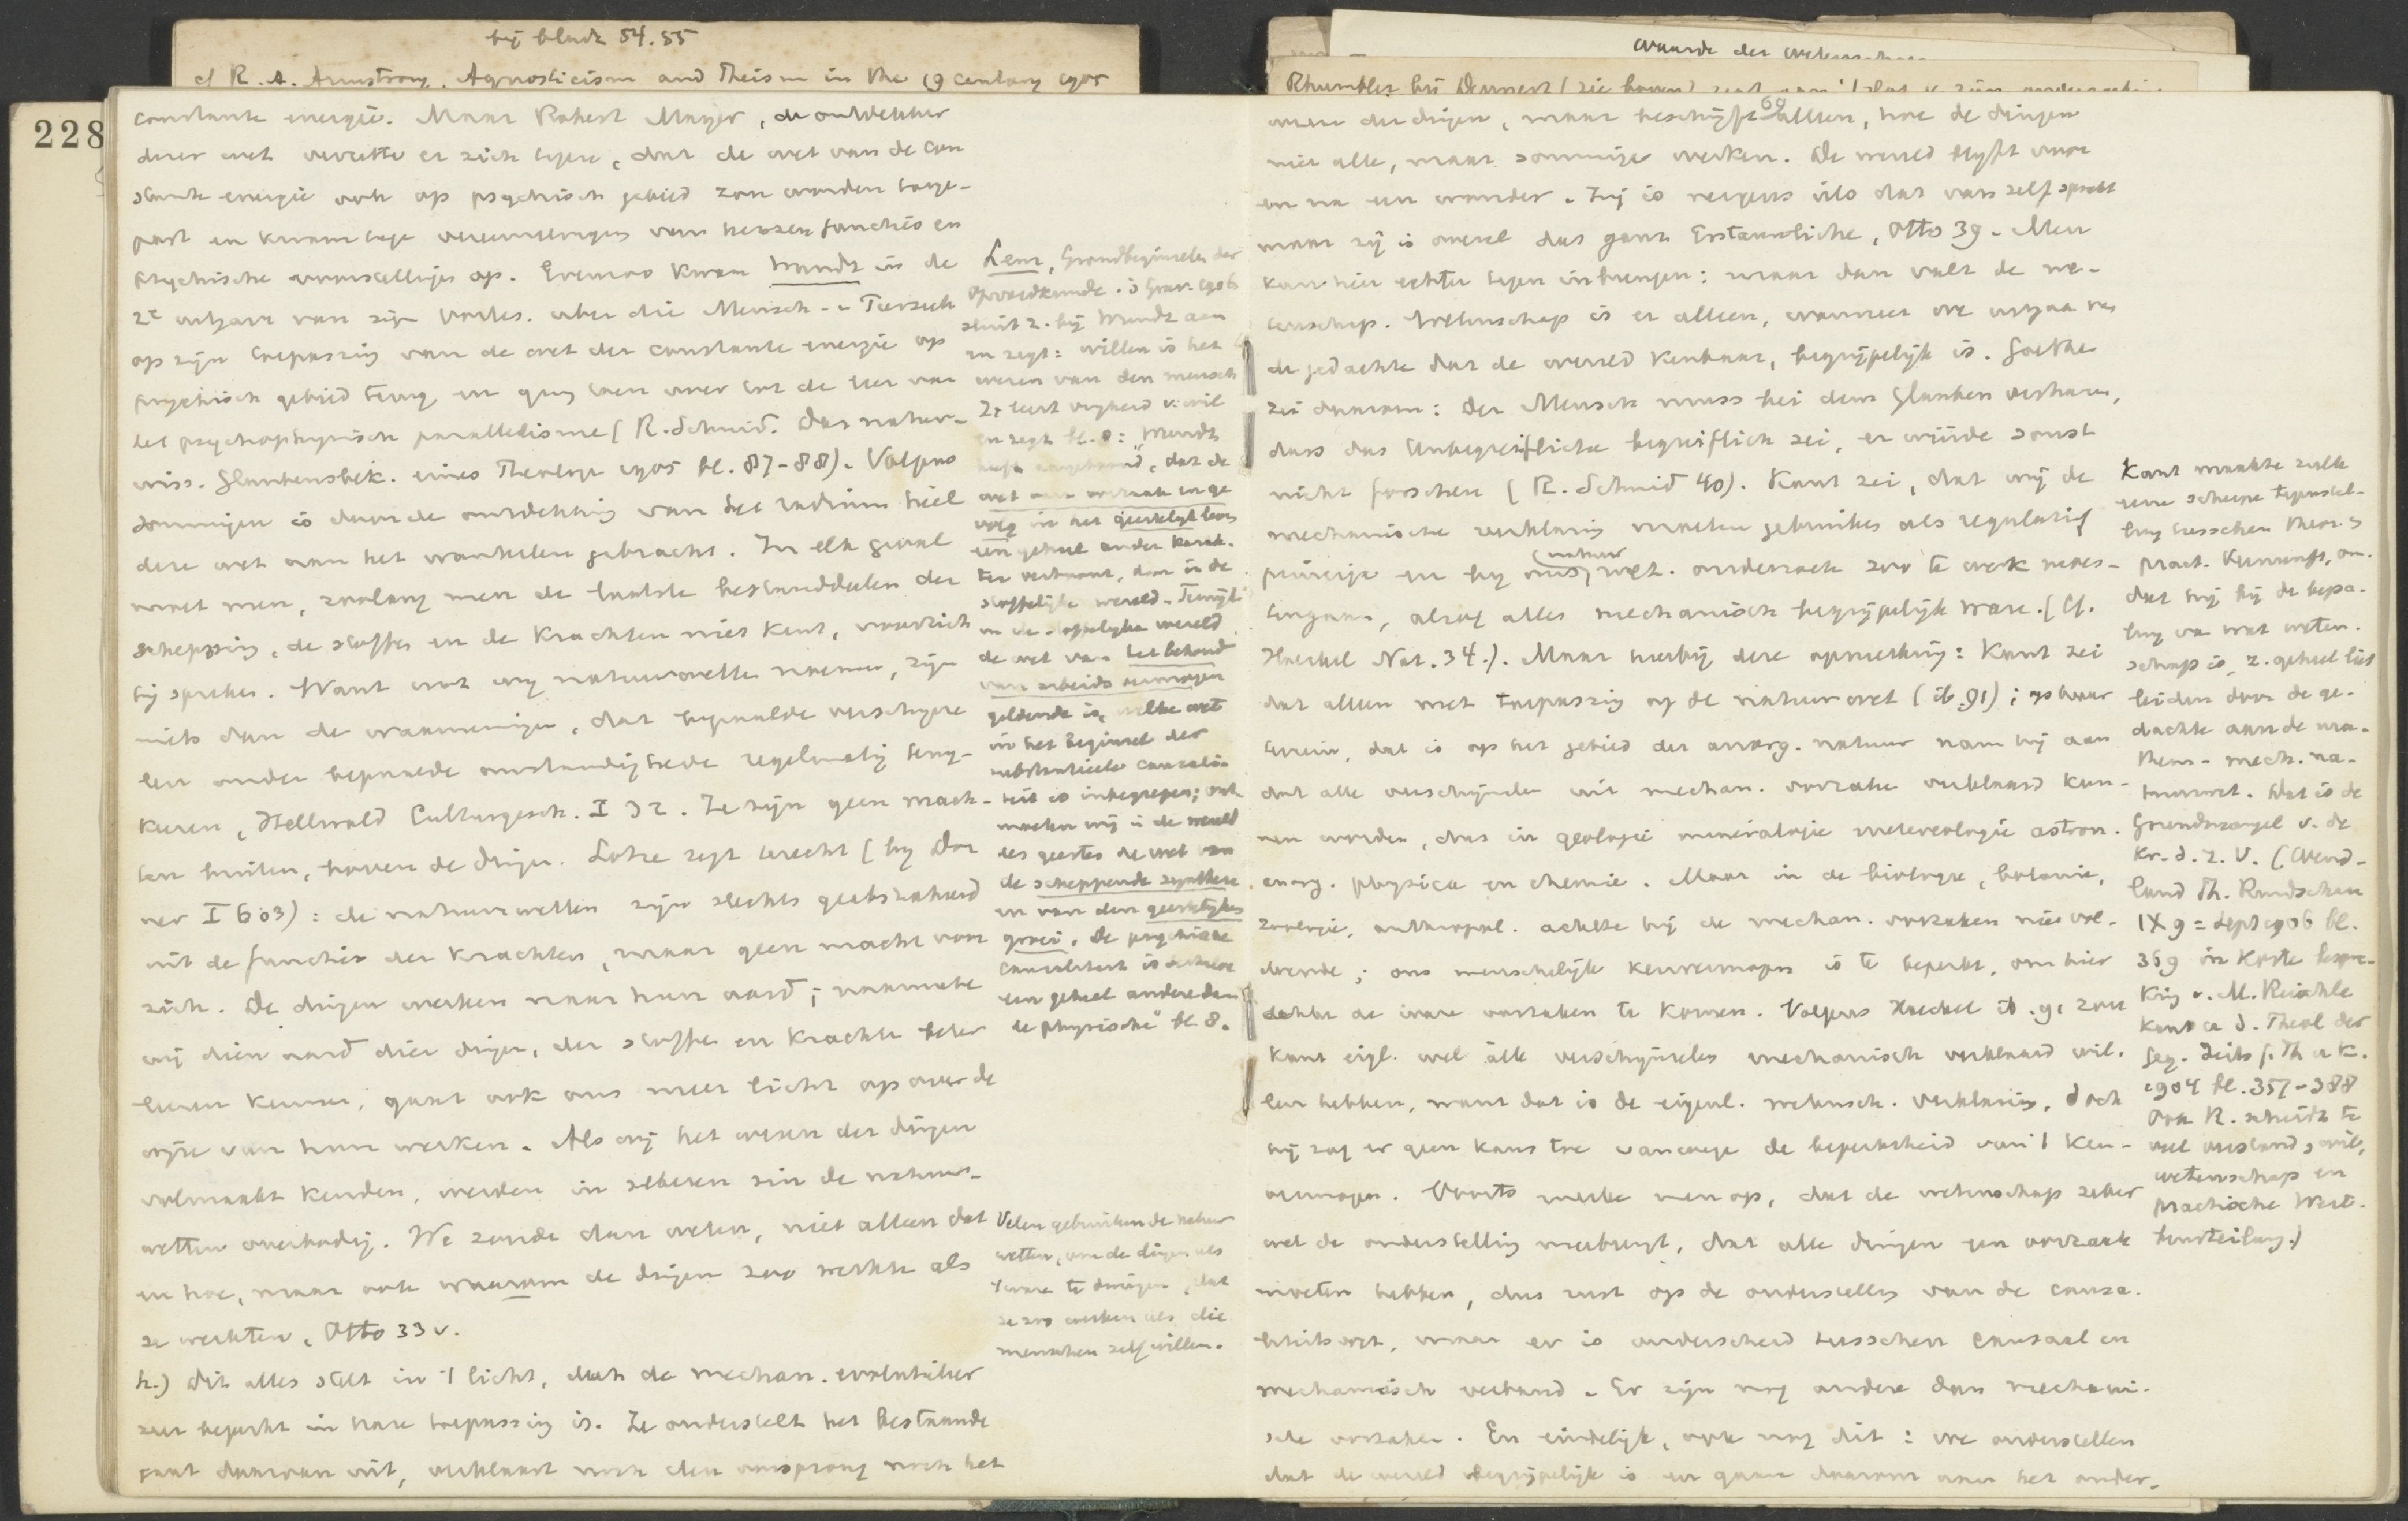 bij bladz 54.55
cf R. A. Armstrong, Agnosticism and Theism in the 19 century 1905
228
constante energie. Maar Robert Mayer, de ontdekker
dezer wet verzette er zich tegen, dat de wet van de con
stante energie ook op psychisch gebied zou worden toege-
past en kwam tegen vereenzelviging van hersenfuncties en
psychische voorstellingen op. Evenzoo kwam Wundt in de
2e uitgave van zijn Vorles. über die Mensch- u Tierseele
op zijn toepassing van de wet der constante energie op
psychisch gebied terug en ging toen over tot de leer van
het psychophysisch parallelisme (R. Schmid. Das natur-
wiss. Glaubensbek. eines Theologen 1905 bl. 87-88). Volgens
sommigen is door de ontdekking van het radium heel
deze wet aan het wankelen gebracht. In elk geval
moet men, zoolang men de laatste bestanddeelen der
schepping, de stoffen en de krachten niet kent, voorzichtig
zijn spreken. Want wat wij natuurwetten noemen, zijn
niets dan de waarneming, dat bepaalde verschijnse
len onder bepaalde omstandigheden regelmatig terug-
keeren, Hellwald Culturgesch. I 32. Ze zijn geen mach-
ten buiten, boven de dingen. Lotze zegt terecht (bij Dor
ner I 603): de natuurwetten zijn slechts geabstraheerd
uit de functies der krachten, maar geen macht voor
zich. De dingen werken naar hun aard; naarmate
wij dien aard dier dingen, der stoffen en krachten beter
leeren kennen, gaat ook ons meer licht op over de
wijze van hun werken. Als wij het wezen der dingen
volmaakt kenden, werden in zekeren zin de natuur-
wetten overbodig. We zouden dan weten, niet alleen dat
en hoe, maar ook waarom de dingen zoo werkten als
ze werkten, Otto 33 v.
h.) Dit alles stelt in 't licht, dat de mechan. evolutieleer
zeer beperkt in hare toepassing is. Ze onderstelt het bestaande
gaat daarvan uit, verklaart noch den oorsprong noch het
Lem, Grondbeginselen der
Opvoedkunde. 's Grav. 1906
sluit z. bij Wundt aan
en zegt: willen is het
wezen van den mensch
Ze leert vrijheid v. wil
en zegt bl. 8: Wundt
heeft aangetoond", dat de
wet van oorzaak en ge
volg in het geestelijk leven
een geheel ander karak-
ter vertoont, dan in de
stoffelijke wereld. Terwijl
in de stoffelijke wereld
de wet van het behoud
van arbeidsvermogen
geldende is, welke wet
in het beginsel der
substantieele causali-
teit is inbegrepen; ook
moeten wij in de wereld
des geestes de wet van
de scheppende synthese
en van den geestelijken
groei. De psychische
causaliteit is derhalve
een geheel andere dan
de physische" bl. 8.
Velen gebruiken de natuur
wetten, om de dingen als
't ware te dwingen, dat
ze zoo werken als die
menschen zelf willen.
waarde der wetenschap
69
wezen der dingen, maar beschrijft alleen, hoe de dingen
niet alle, maar sommige werken. De wereld blijft voor
en na een wonder. Zij is nergens iets dat van zelf spreekt
maar zij is overal das ganz Erstaunliche, Otto 39. Men
kan hier echter tegen inbrengen: maar dan valt de we-
tenschap. Wetenschap is er alleen, wanneer we uitgaan van
de gedachte dat de wereld kenbaar, begrijpelijk is. Goethe
zei daarom: der Mensch muss bei dem Glauben verharren,
dass das Unbegreifliche begreiflich sei, er würde sonst
nicht forschen (R. Schmid 40). Kant zei, dat wij de
mechanische verklaring moeten gebruiken als regulatief
principe en bij ons natuurwet. onderzoek zoo te werk moes-
ten gaan, alsof alles mechanisch begrijpelijk ware. (Cf.
Haeckel Nat. 34.). Maar hierbij deze opmerking: Kant zei
dat alleen met toepassing op de natuurwet (ib. 91); op haar
terrein, dat is op het gebied der anorg. natuur nam hij aan
dat alle verschijnselen uit mechan. oorzaken verklaard kun-
nen worden, dus in geologie mineralogie meteorologie astron.
anorg. physica en chemie. Maar in de biologie, botanie,
zoologie, anthropol. achtte hij de mechan. oorzaken niet vol-
doende; ons menschelijk kenvermogen is te beperkt, om hier
achter de ware oorzaken te komen. Volgens Haeckel ib. 91 zou
Kant eigl. wel alle verschijnselen mechanisch verklaard wil-
len hebben, want dat is de eigenl. wetensch. verklaring, doch
hij zag er geen kans toe vanwege de beperktheid van 't ken-
vermogen. Voorts merke men op, dat de wetenschap zeker
wel de onderstelling meebrengt, dat alle dingen een oorzaak
moeten hebben, dus rust op de onderstelling van de causa-
liteitswet, maar er is onderscheid tusschen causaal en
mechanisch verband. Er zijn nog andere dan mechani-
sche oorzaken. En eindelijk, ook nog dit: we onderstellen
dat de wereld begrijpelijk is en gaan daarom aan het onder-
Kant maakte zulk
eene scherpe tegenstel-
ling tusschen theor. en
pract. Vernunft, om-
dat hij bij de bepa-
ling van wat weten-
schap is, z. geheel liet
leiden door de ge-
dachte aan de ma-
them- mech. na-
tuurwet. Dat is de
Grundmangel v. de
Kr. d. r. V. (Wend-
land Th. Rundschau
IX 9 = Sept 1906 bl.
359 in Korte bespre-
king v. M. Reischle
Kant u d. Theol der
Geg. Zeits f. Th u K.
1904 bl. 357-388
Ook R. scheidt te
veel verstand, wil,
wetenschap en
practische Wert-
beurteilung.)